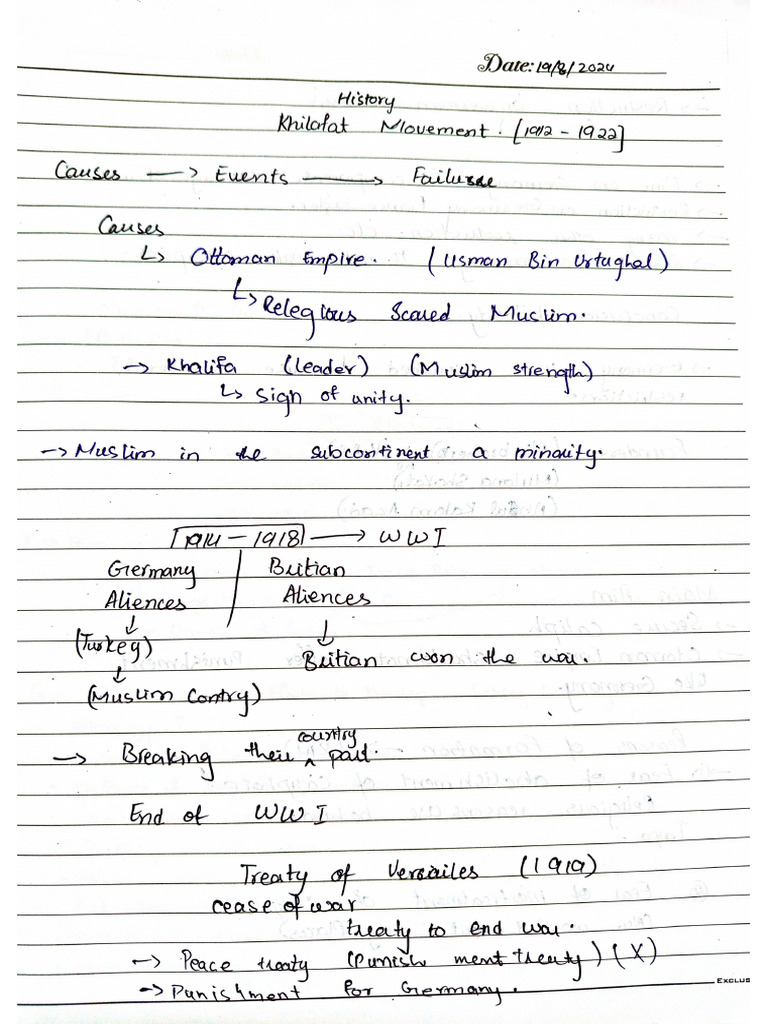 Date: 19/8/2024
History
Khilafat Movement. [1912 - 1922]
Causes —> Events —> Failure
Causes
↳ Ottoman Empire. (Usman Bin Urtughal)
↳ Relegious Scared Muslim.
→ Khalifa (leader) (Muslim strength)
↳ Sign of unity.
→ Muslim in the subcontinent in a minority.
1914 - 1918 → WWI
Germany | Britian
Aliences | Aliences
(Turkey)
Britian won the war.
(Muslim Contry)
→ Breaking their country part.
End of WWI
Treaty of Versailes (1919)
cease of war
treaty to end war.
→ Peace treaty (Punish ment treaty) (X)
→ Punishment for Germany.
EXCLUS